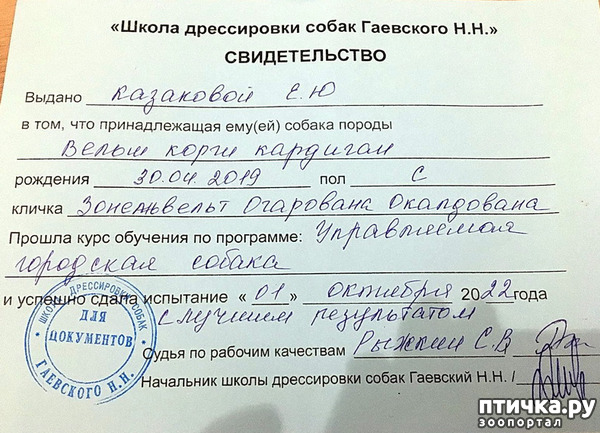 «Школа дрессировки собак Гаевского Н.Н.»
СВИДЕТЕЛЬСТВО
Выдано Казаковой Е.Ю
в том, что принадлежащая ему(ей) собака породы
Вельш корги кардиган
рождения 30.04.2019 пол С
кличка Зоненьвельт Очарована Околдована
Прошла курс обучения по программе: Управляемая
городская собака
и успешно сдала испытание «01» октября 2022года
с лучшим результатом
Судья по рабочим качествам Рыжкин С.В
Начальник школы дрессировки собак Гаевский Н.Н. /
ШКОЛА ДРЕССИРОВКИ СОБАК
ДЛЯ
ДОКУМЕНТОВ
ГАЕВСКОГО Н.Н.
птичка.ру
зоопортал